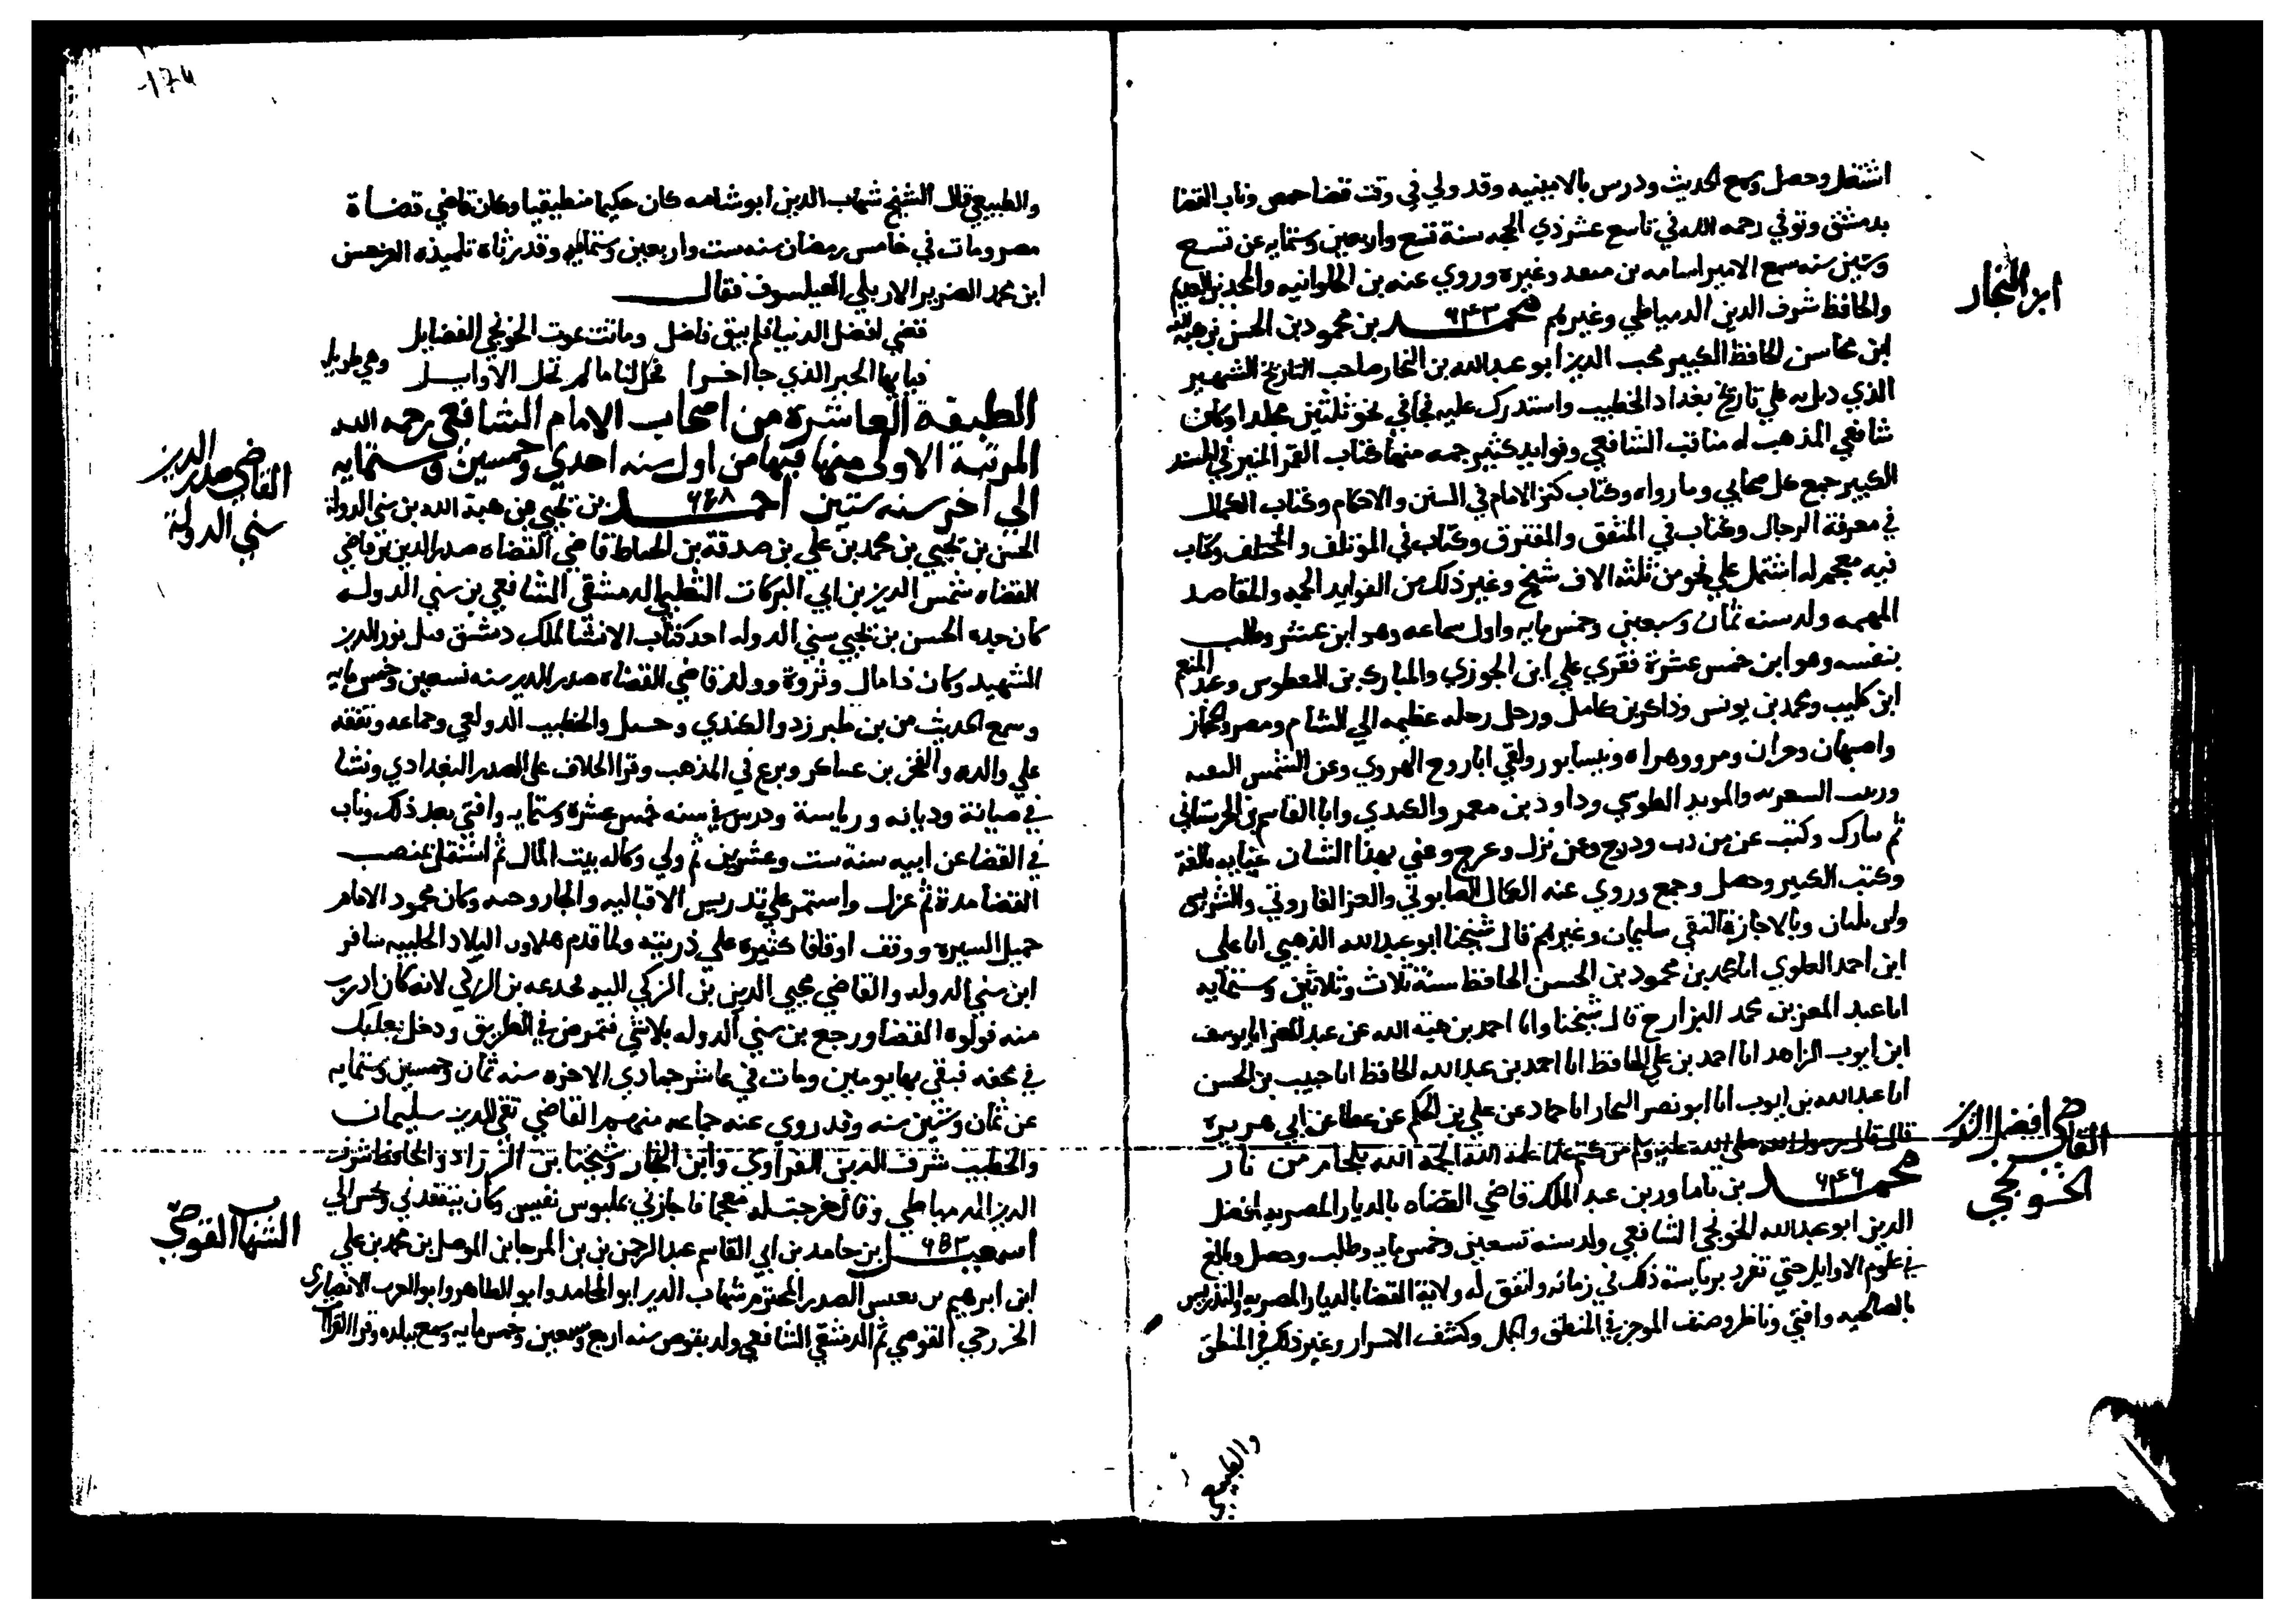 اشتغل وحصل وسمع الحديث ودرس بالامينيه وقد ولي في وقت قضا حمص وناب القضا
بدمشق وتوفي رحمه الله في تاسع عشر ذي الحجه سنة تسع واربعين وستمايه عن تسع
وستين سنه سمع الامير اسامه بن منقد وغيره وروي عنه بن الحلوانيه والمجد بن العديم
والحافظ شرف الدين الدمياطي وغيرهم محمد ٦٤٣ بن محمود بن الحسن بن هبة الله
ابن النجار
ابن محاسن الحافظ الكبير محب الدين ابو عبد الله بن النجار صاحب التاريخ الشهير
الذي ذيل به علي تاريخ بغداد الخطيب واستدرك عليه فجا في نحو ثلثين مجلدا وكان
شافعي المذهب له مناقب الشافعي وفوايد كثير جمه منها كتاب القمر المنير في المسند
الكبير جمع كل صحابي وما رواه وكتاب كنز الامام في السنن والاحكام وكتاب الكمال
في معرفة الرجال وكتاب في المتفق والمفترق وكتاب في المؤتلف والمختلف وكتاب
فيه معجم له اشتمل علي نحو من ثلثه الاف شيخ وغير ذلك من الفوايد الجمه والمقاصد
المهمه ولد سنه ثمان وسبعين وخمس مايه واول سماعه وهو ابن عشر وطلب
بنفسه وهو ابن خمس عشرة فقري علي ابن الجوزي والمبارك بن المعطوس وعبد المنعم
ابن كليب ومحمد بن يونس وذاكر بن كامل ورحل رحله عظيمه الي الشام ومصر والحجاز
واصبهان وحران ومرو وهراه ونيسابور ولقي ابا روح الهروي وعين الشمس الثقفيه
وزينب الشعريه والمويد الطوسي وداود بن معمر والكندي وابا القاسم بن الحرستاني
ثم وكتب عن من دب ودرج وعن نزل وعرج وعني بهذا الشان عنايه بالغة
وكتب الكبير وحصل وجمع وروي عنه الكمال الصابوني والعز الفاروثي والشريشي
وابن بلبان وبالاجازة التقي سليمان وغيرهم قال شيخنا ابو عبد الله الذهبي انا علي
ابن احمد العلوي انا محمد بن محمود بن الحسن الحافظ سنة ثلاث وثلاثين وستمايه
انا عبد المعز بن محمد البزار ح قال شيخنا وانا احمد بن هبة الله عن عبد المعز انا يوسف
ابن ايوب الزاهد انا احمد بن علي الحافظ انا احمد بن عبد الله الحافظ انا حبيب بن الحسن
انا عبد الله بن ايوب انا ابو نصر التمار انا حماد عن علي بن الحكم عن عطا عن ابي هريره
قال قال رسول الله صلي الله عليه وسلم من كتم علما علمه الله الجمه الله بلجام من نار
القاضي افضل الدين
الخونجي
محمد ٦٤٦ بن ناماور بن عبد الملك قاضي القضاه بالديار المصريه افضل
الدين ابو عبد الله الخونجي الشافعي ولد سنه تسعين وخمس مايه وطلب وحصل وبالغ
في علوم الاوايل حتي تفرد برياسة ذلك في زمانه واتفق له ولاية القضا بالديار المصريه والتدريس
بالصالحيه وافتي وناظر وصنف الموجز في المنطق والجمل وكشف الاسرار وغير ذلك في المنطق
والطبيعي
والطبيعي قال الشيخ شهاب الدين ابو شامه كان حكيما منطيقيا وكان قاضي قضاة
مصر ومات في خامس رمضان سنه ست واربعين وستمايه وقد رثاه تلميذه العز حسن
ابن محمد الضرير الاربلي الفيلسوف فقال
قضي افضل الدنيا فلم يبق فاضل وماتت بموت الخونجي الفضايل
فيا ايها الحبر الذي جا اخرا فحل لنا ما لم تحل الاوايل وهي طويله
الطبقة العاشرة من اصحاب الامام الشافعي رحمه الله
المرتبة الاولي منها فيها من اول سنه احدي وخمسين وستمايه
الي اخر سنه ستين احمد ٦٥٨ بن يحيي بن هبة الله بن سني الدولة
القاضي صدر الدين
سني الدولة
الحسن بن يحيي بن محمد بن علي بن صدقة بن الخياط قاضي القضاه صدر الدين بن قاضي
القضاه شمس الدين بن ابي البركات التغلبي الدمشقي الشافعي بن سني الدوله
كان جده الحسن بن يحيي سني الدوله احد كتاب الانشا لملك دمشق قبل نور الدين
الشهيد وكان ذا مال وثروة وولد قاضي القضاه صدر الدين سنه تسعين وخمس مايه
وسمع الحديث من بن طبرزد والكندي وحنبل والخطيب الدولعي وجماعه وتفقه
علي والده والفخر بن عساكر وبرع في المذهب وقرا الخلاف علي الصدر البغدادي ونشا
في صيانة وديانه ورياسة ودرس في سنه خمس عشرة وستمايه وافتي بعد ذلك وناب
في القضا عن ابيه سنة ست وعشرين ثم ولي وكاله بيت المال ثم استقل بمنصب
القضا مدة ثم عزل واستمر علي تدريس الاقباليه والجاروخيه وكان محمود الامام
جميل السيره ووقف اوقافا كثيره علي ذريته ولما قدم هلاون البلاد الحلبيه سافر
ابن سني الدوله والقاضي محيي الدين بن الزكي اليه فخدعه بن الزكي لانه كان ادرب
منه فولوه القضا ورجع بن سني الدوله بلا شي فتمرض في الطريق ودخل بعلبك
في محفه فبقي بها يومين ومات في عاشر جمادي الاخره سنه ثمان وخمسين وستمايه
عن ثمان وستين سنه وقد روي عنه جماعه منهم القاضي تقي الدين سليمان
والخطيب شرف الدين الفراوي وابن الخباز وشيخنا بن الزراد والحافظ شرف
الدين الدمياطي وقال خرجت له معجما فاجازني بملبوس نفيس وكان يتفقدني ويحسن الي
الشهاب القوصي
اسمعيل ٦٥٣ بن حامد بن ابي القاسم عبد الرحمن بن بن المرجا بن الموصل بن محمد بن علي
ابن ابرهيم بن الصدر المحترم شهاب الدين ابو المحامد وابو الطاهر وابو العرب الانصاري
الخزرجي القوصي ثم الدمشقي الشافعي ولد بقوص سنه اربع وسبعين وخمس مايه وسمع ببلده وقرا القران